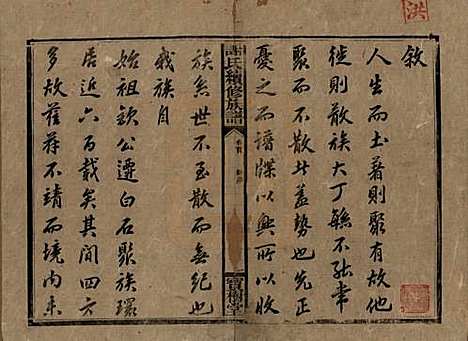 洪
敘
人生而土著則聚有故他
徙則散族大丁繇不能常
聚而不散此蓋勢也先正
憂之而譜牒以興所以收
謝氏續修族譜
卷首
寶樹堂
族而世不至散而無紀也
我族自
始祖欽公遷白石聚族環
居近六百載矣其間四方
多故萑苻不靖而境內未